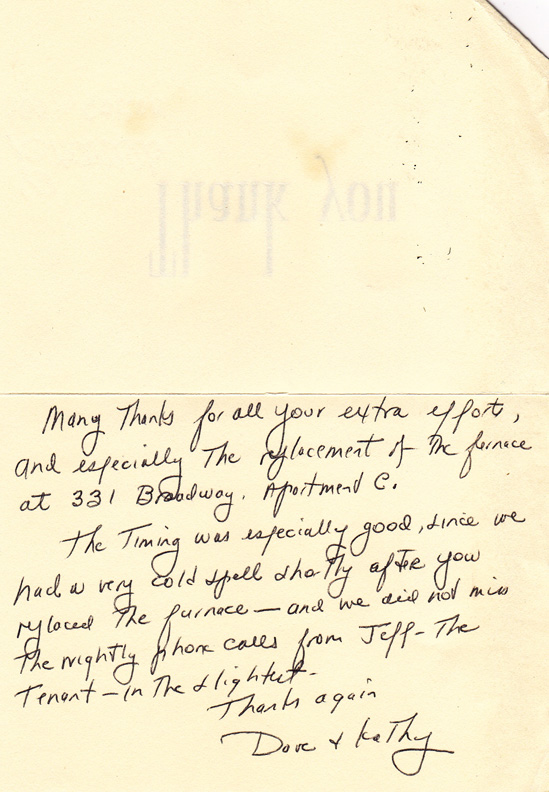 Thank you
Many Thanks for all your extra efforts,
and especially The replacement of The furnace
at 331 Broadway. Apartment C.
The Timing was especially good, since we
had a very cold spell shortly after you
replaced The furnace — and we did not miss
The nightly phone calls from Jeff - The
Tenant — in The slightest -
Thanks again
Dave & Kathy